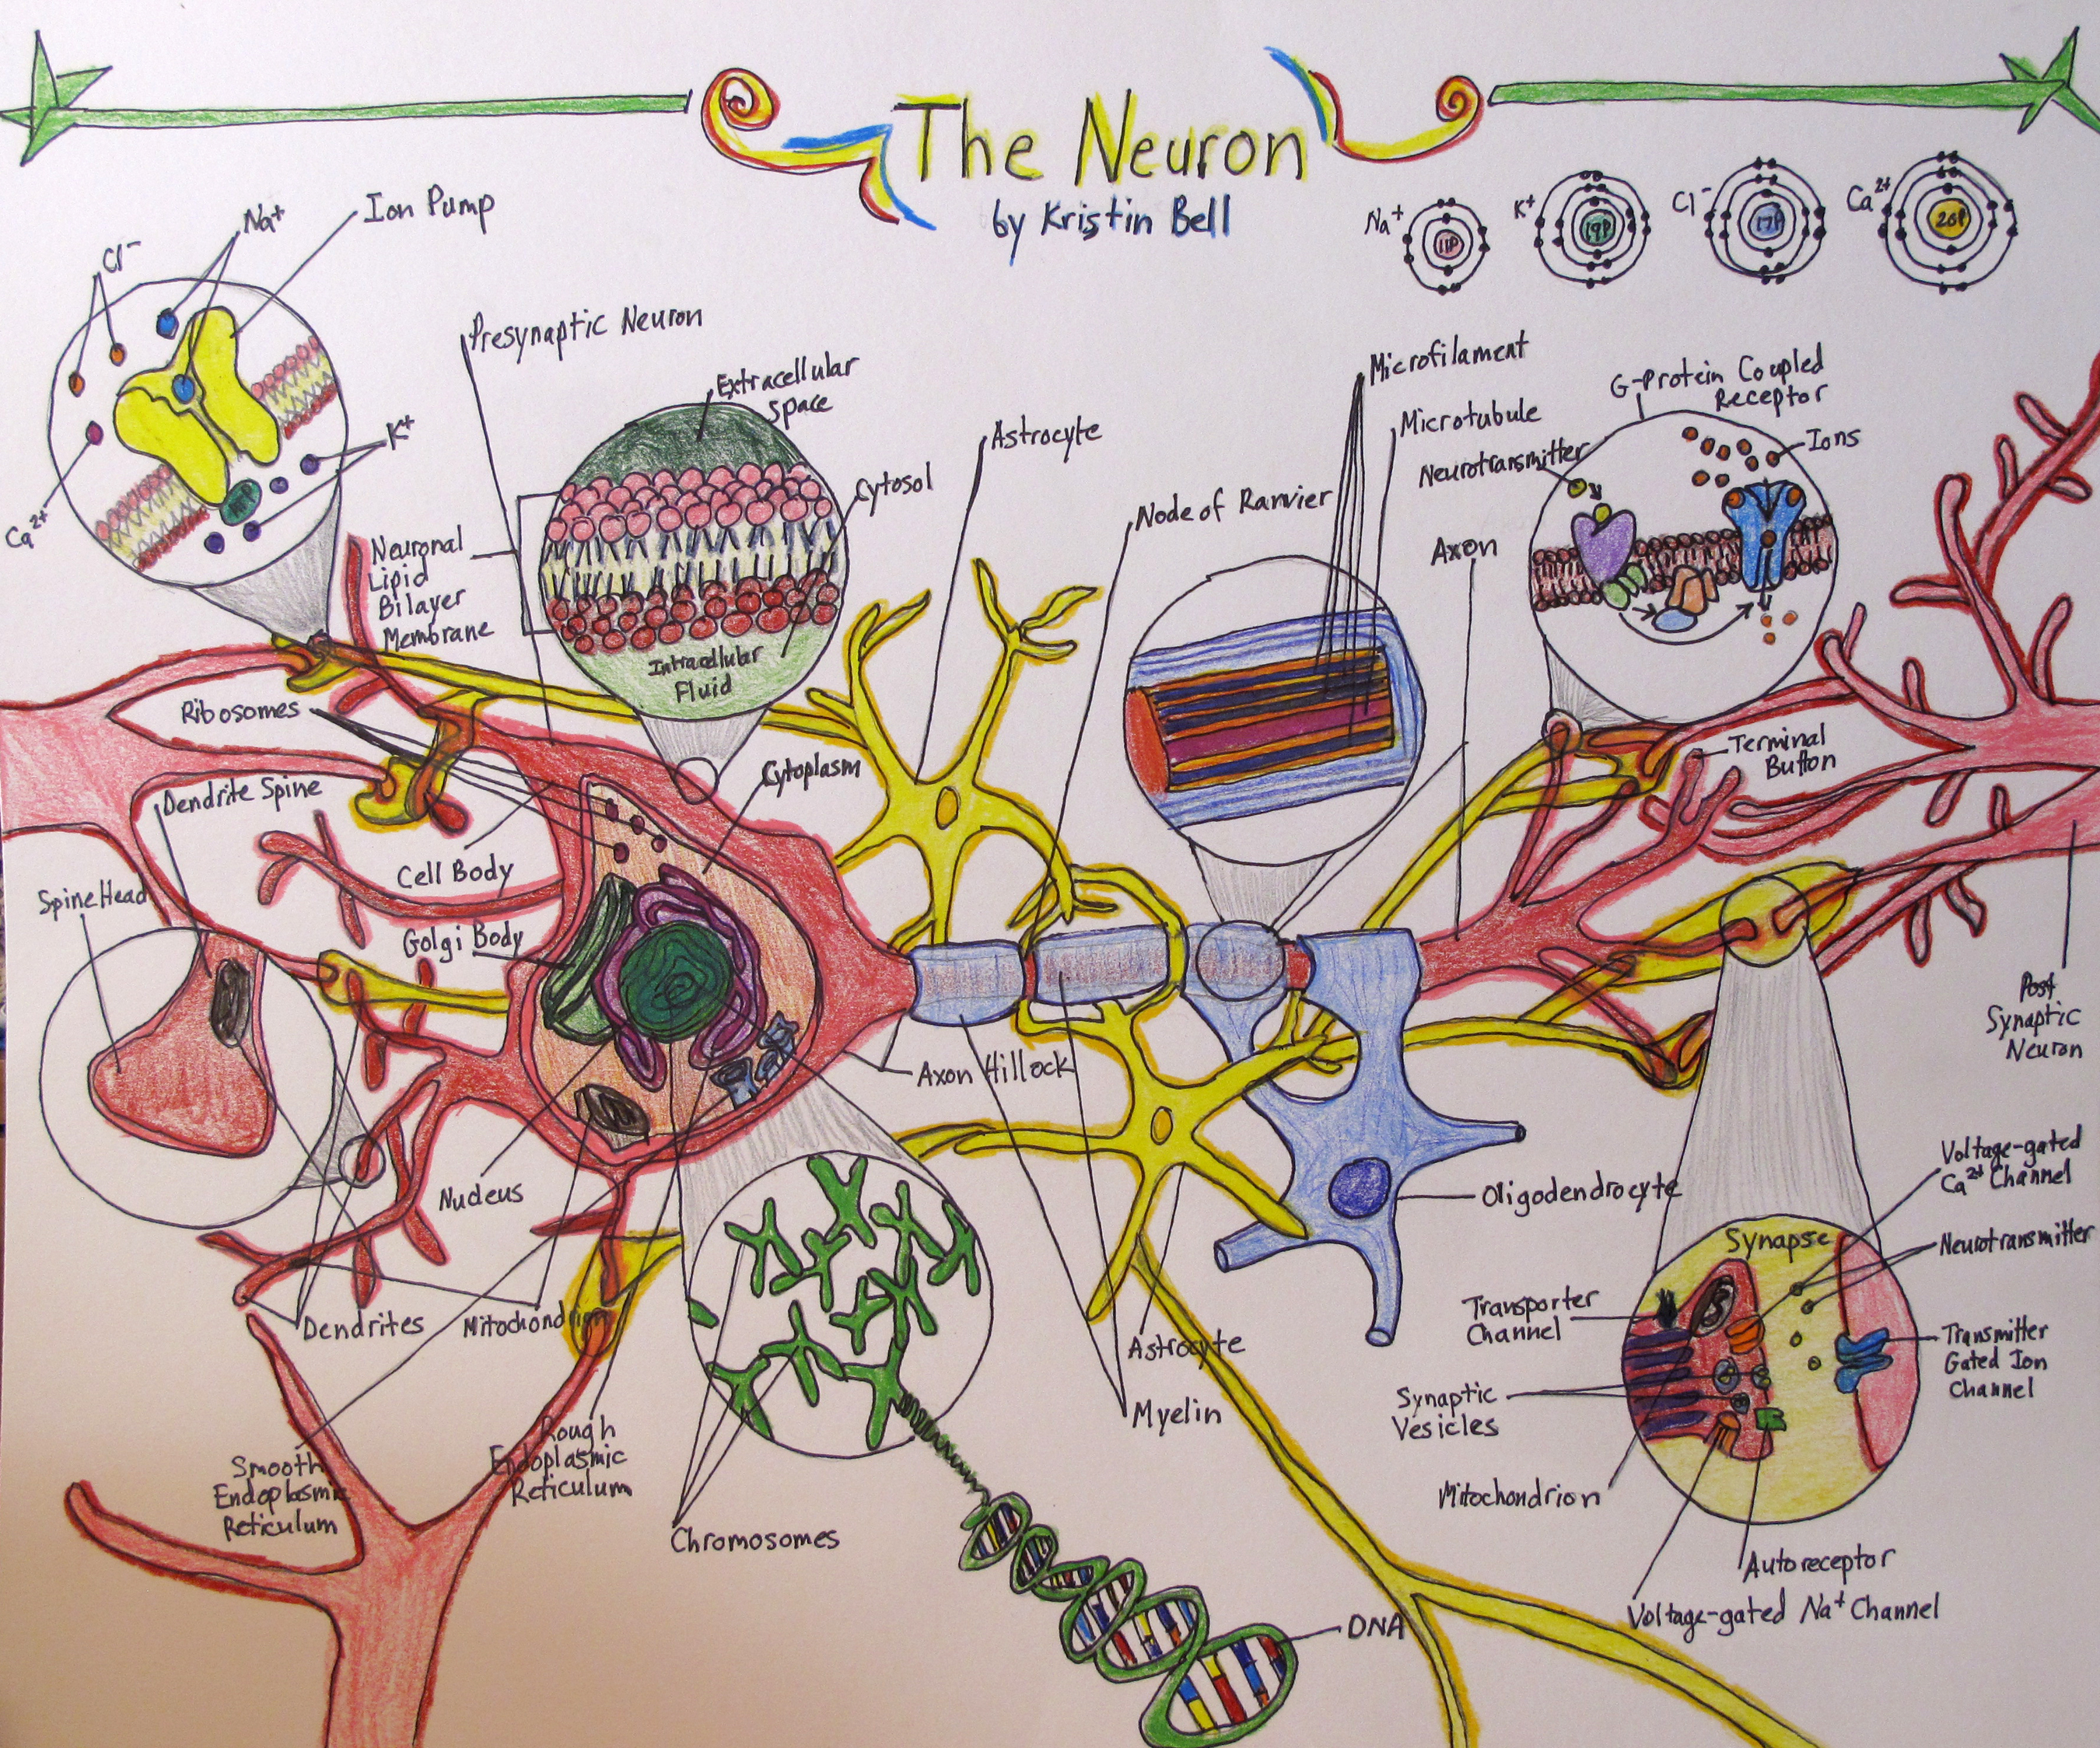 The Neuron
by Kristin Bell
Na⁺
11P
K⁺
19P
Cl⁻
17P
Ca²⁺
20P
Cl⁻
Na⁺
Ion Pump
K⁺
Ca²⁺
ATP
Presynaptic Neuron
Extracellular
Space
Cytosol
Neuronal
Lipid
Bilayer
Membrane
Intracellular
Fluid
Astrocyte
Node of Ranvier
Microfilament
Microtubule
Axon
G-Protein Coupled
Receptor
Neurotransmitter
Ions
Ribosomes
Dendrite Spine
Cytoplasm
Terminal
Button
Spine Head
Cell Body
Golgi Body
Axon Hillock
Post
Synaptic
Neuron
Nucleus
Oligodendrocyte
Dendrites
Mitochondrion
Astrocyte
Myelin
Smooth
Endoplasmic
Reticulum
Rough
Endoplasmic
Reticulum
Chromosomes
DNA
Voltage-gated
Ca²⁺ Channel
Synapse
Neurotransmitter
Transporter
Channel
Transmitter
Gated Ion
Channel
Synaptic
Vesicles
Mitochondrion
Autoreceptor
Voltage-gated Na⁺ Channel